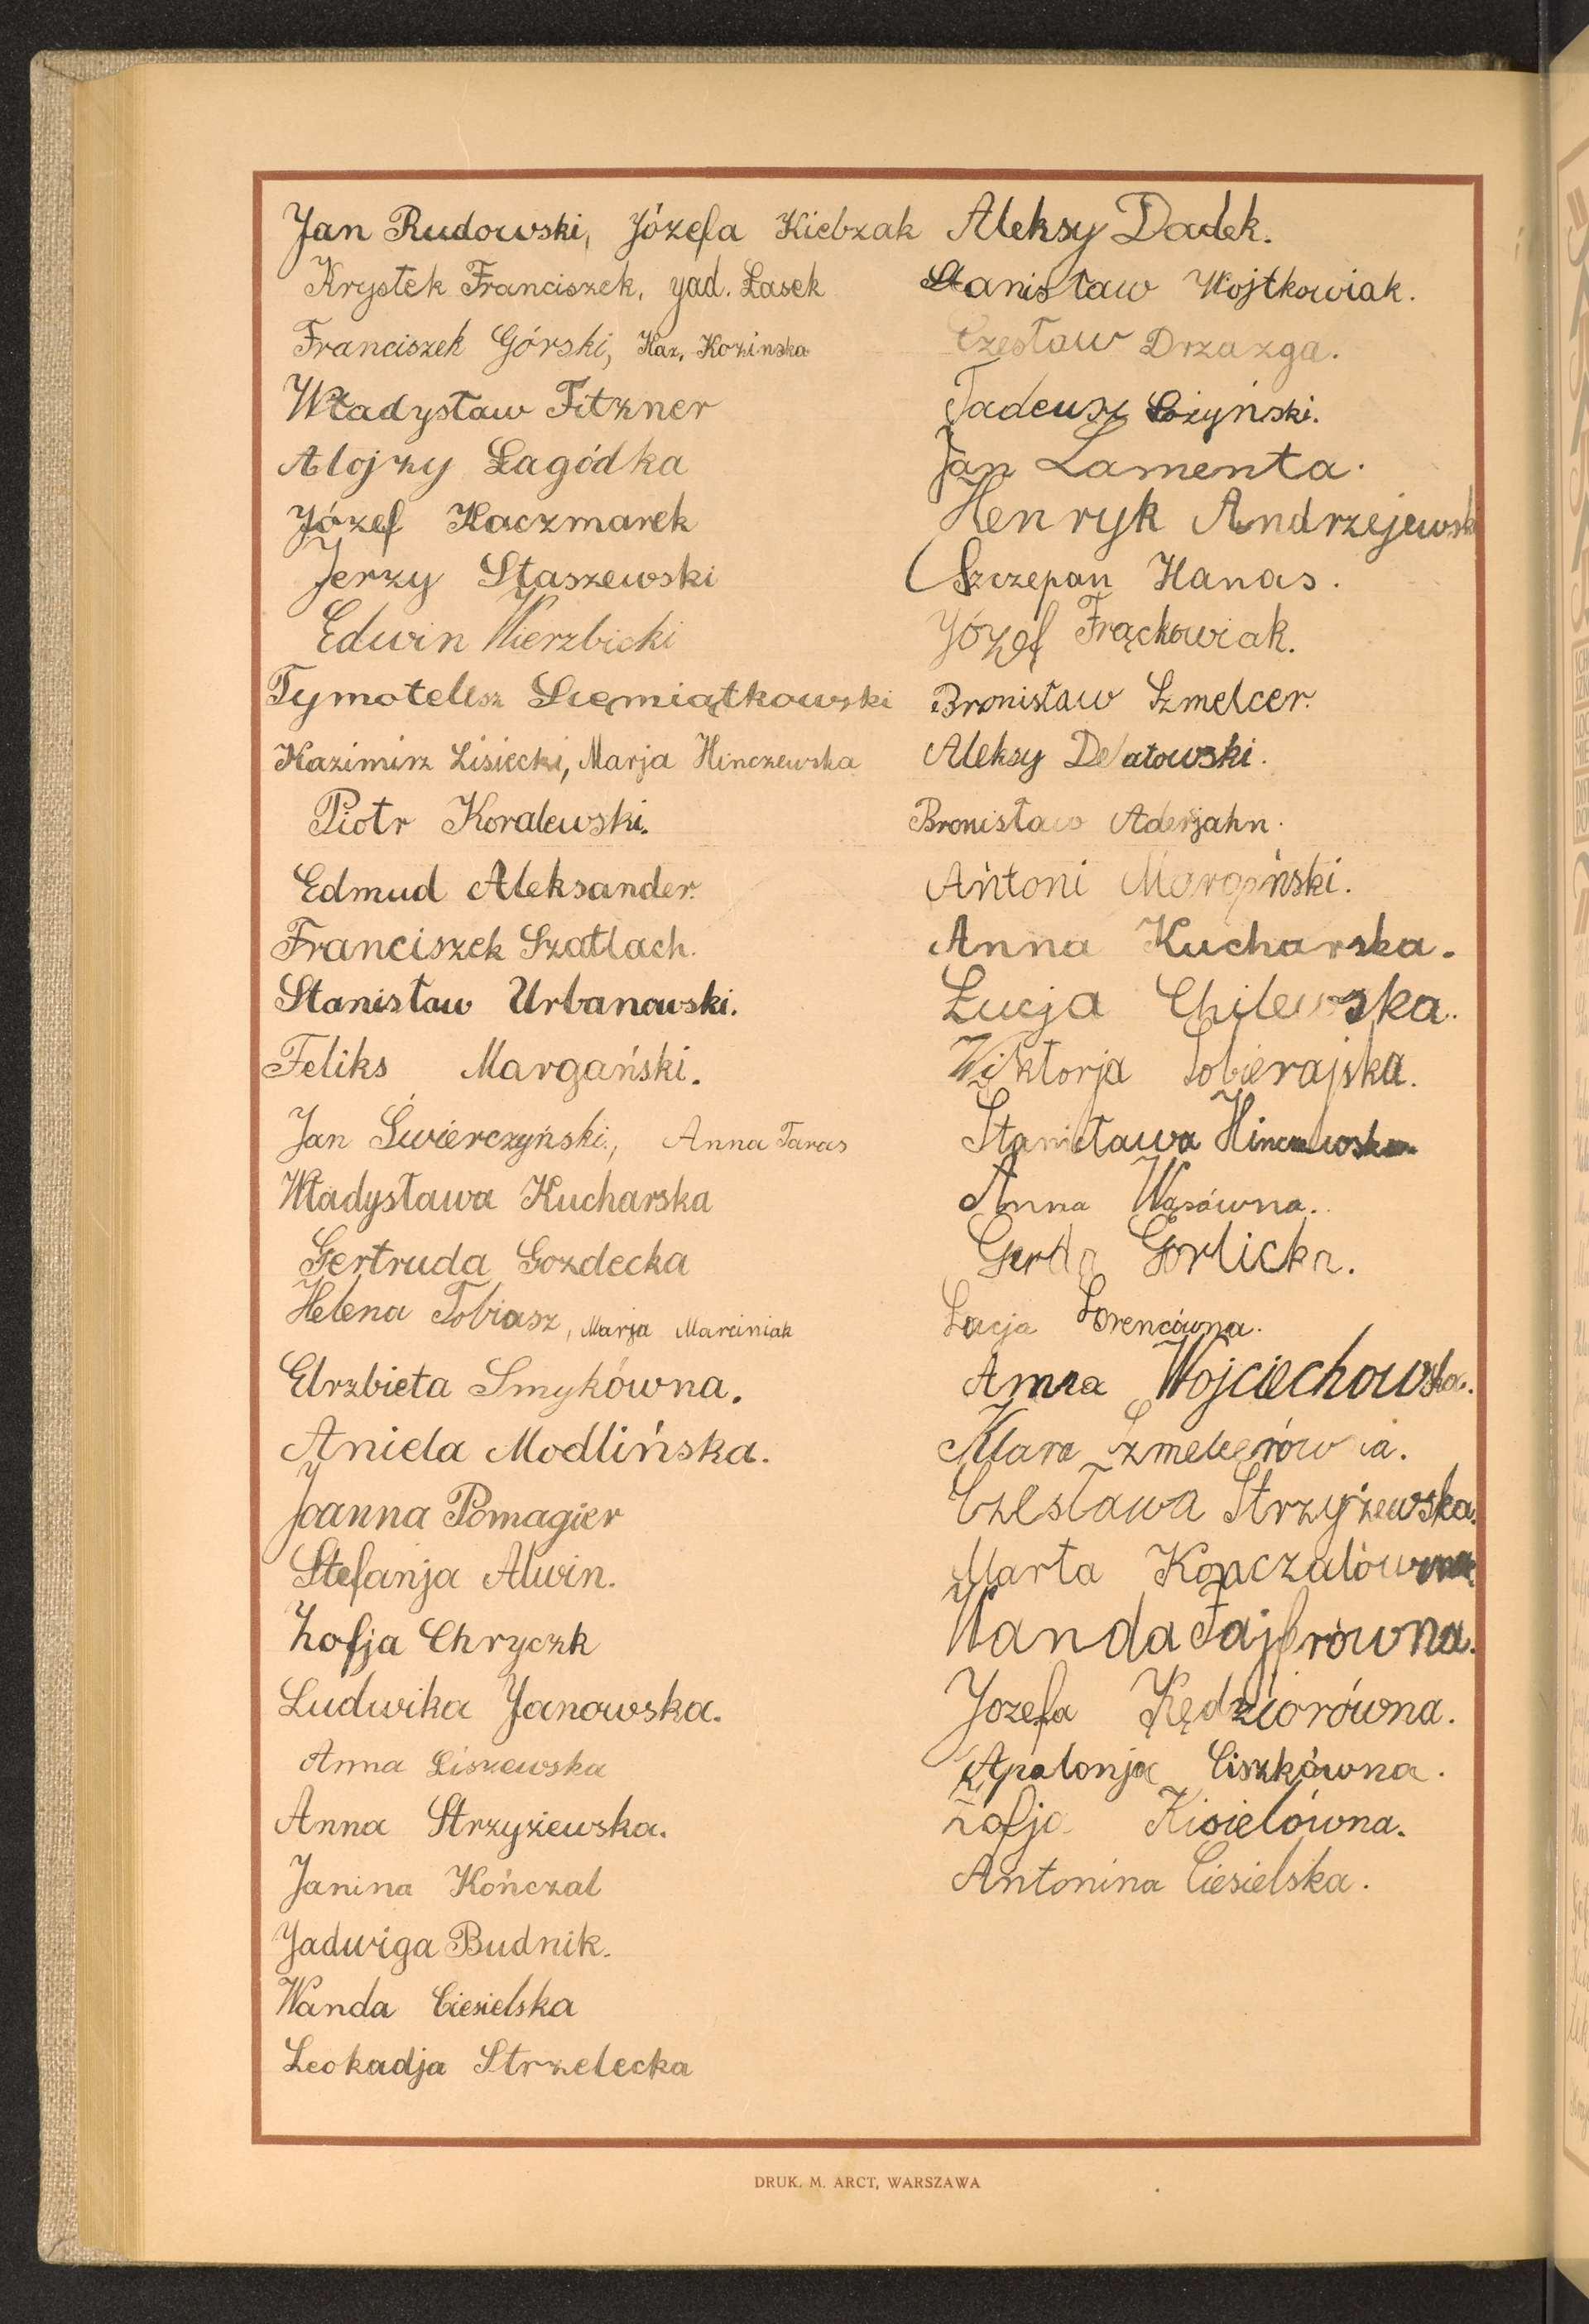 Jan Rudowski, Józefa Kiebzak
Krystek Franciszek, Jad. Łasek
Franciszek Górski, Kaz. Kozinska
Władysław Fitzner
Alojzy Łagódka
Józef Kaczmarek
Jerzy Staszewski
Edwin Wierzbicki
Tymoteusz Siemiątkowski
Kazimirz Lisiecki, Marja Hinczewska
Piotr Koralewski.
Edmud Aleksander.
Franciszek Szatlach.
Stanisław Urbanowski.
Feliks Margański.
Jan Świerczyński, Anna Taras
Władysława Kucharska
Gertruda Gozdecka
Helena Tobiasz, Marja Marciniak
Elrzbieta Smykówna.
Aniela Modlińska.
Joanna Pomagier
Stefanja Alwin.
Zofja Chryczk
Ludwika Janowska.
Anna Liszewska
Anna Strzyżewska.
Janina Kończal
Jadwiga Budnik.
Wanda Ciesielska
Leokadja Strzelecka
Aleksy Dadek.
Stanisław Wojtkowiak.
Czesław Drzazga.
Tadeusz Łożyński.
Jan Lamenta.
Henryk Andrzejewski
Szczepan Hanas.
Józef Frąckowiak.
Bronisław Szmelcer.
Aleksy Delatowski.
Bronisław Aderjahn.
Antoni Margański.
Anna Kucharska.
Łucja Chilewska.
Wiktorja Sobierajska.
Stanisława Hinczewska
Anna Wąsówna.
Gerda Gorlicka.
Łucja Lorencówna.
Anna Wojciechowska.
Klara Szmelcerówna.
Czesława Strzyżewska.
Marta Konczalówna
Wanda Fajfrówna.
Jozefa Kędziorówna.
Apolonja Ciszkówna.
Zofja Kisielówna.
Antonina Ciesielska.
DRUK. M. ARCT, WARSZAWA